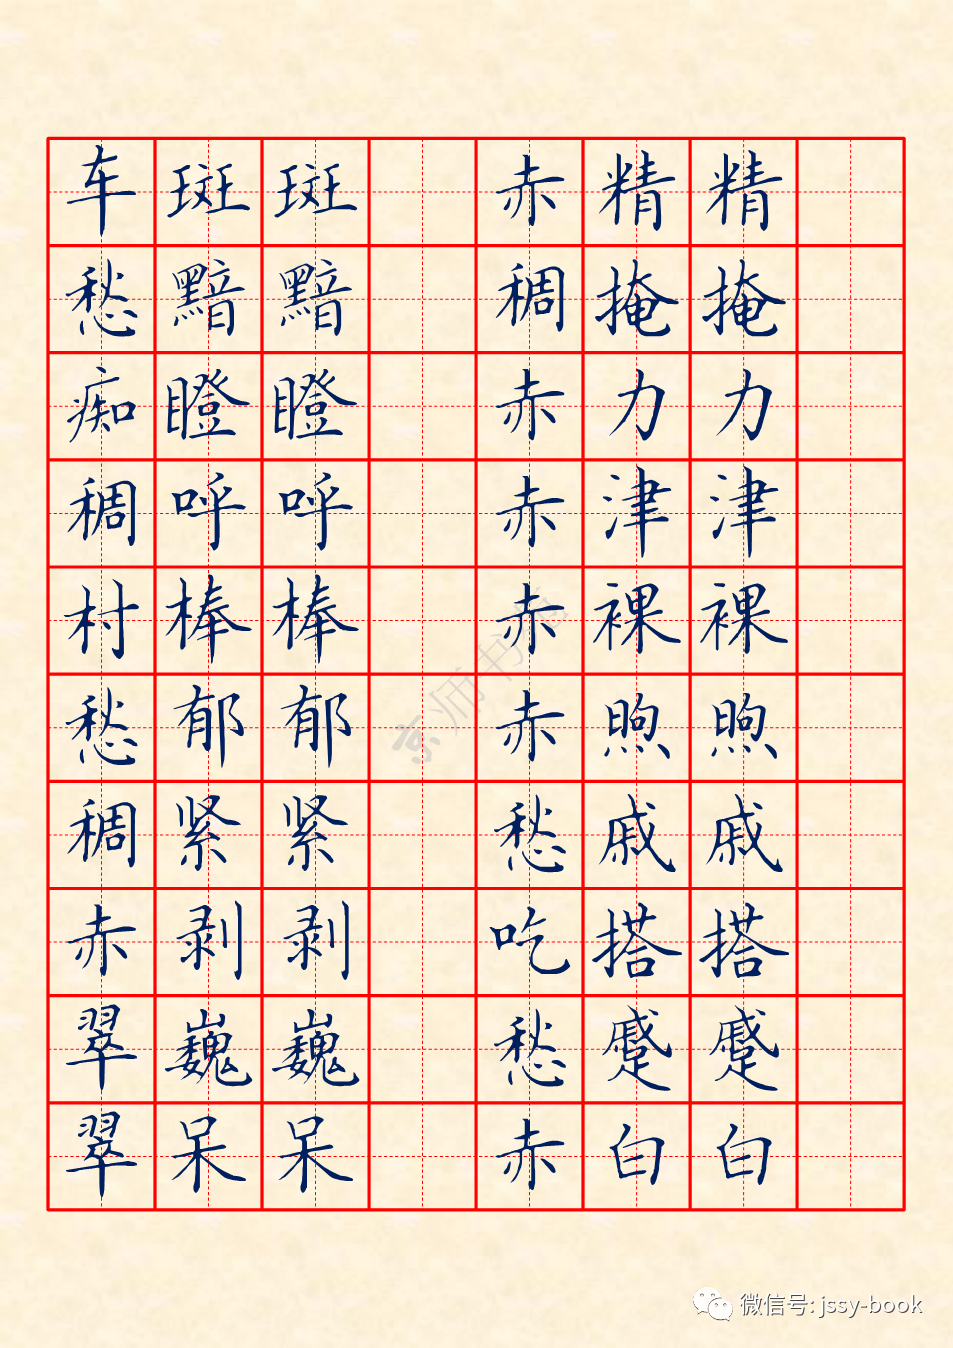 车斑斑 赤精精
愁黯黯 稠掩掩
痴瞪瞪 赤力力
稠呼呼 赤津津
村棒棒 赤裸裸
愁郁郁 赤煦煦
稠紧紧 愁戚戚
赤剥剥 吃搭搭
翠巍巍 愁蹙蹙
翠呆呆 赤白白
京师书苑
微信号: jssy-book